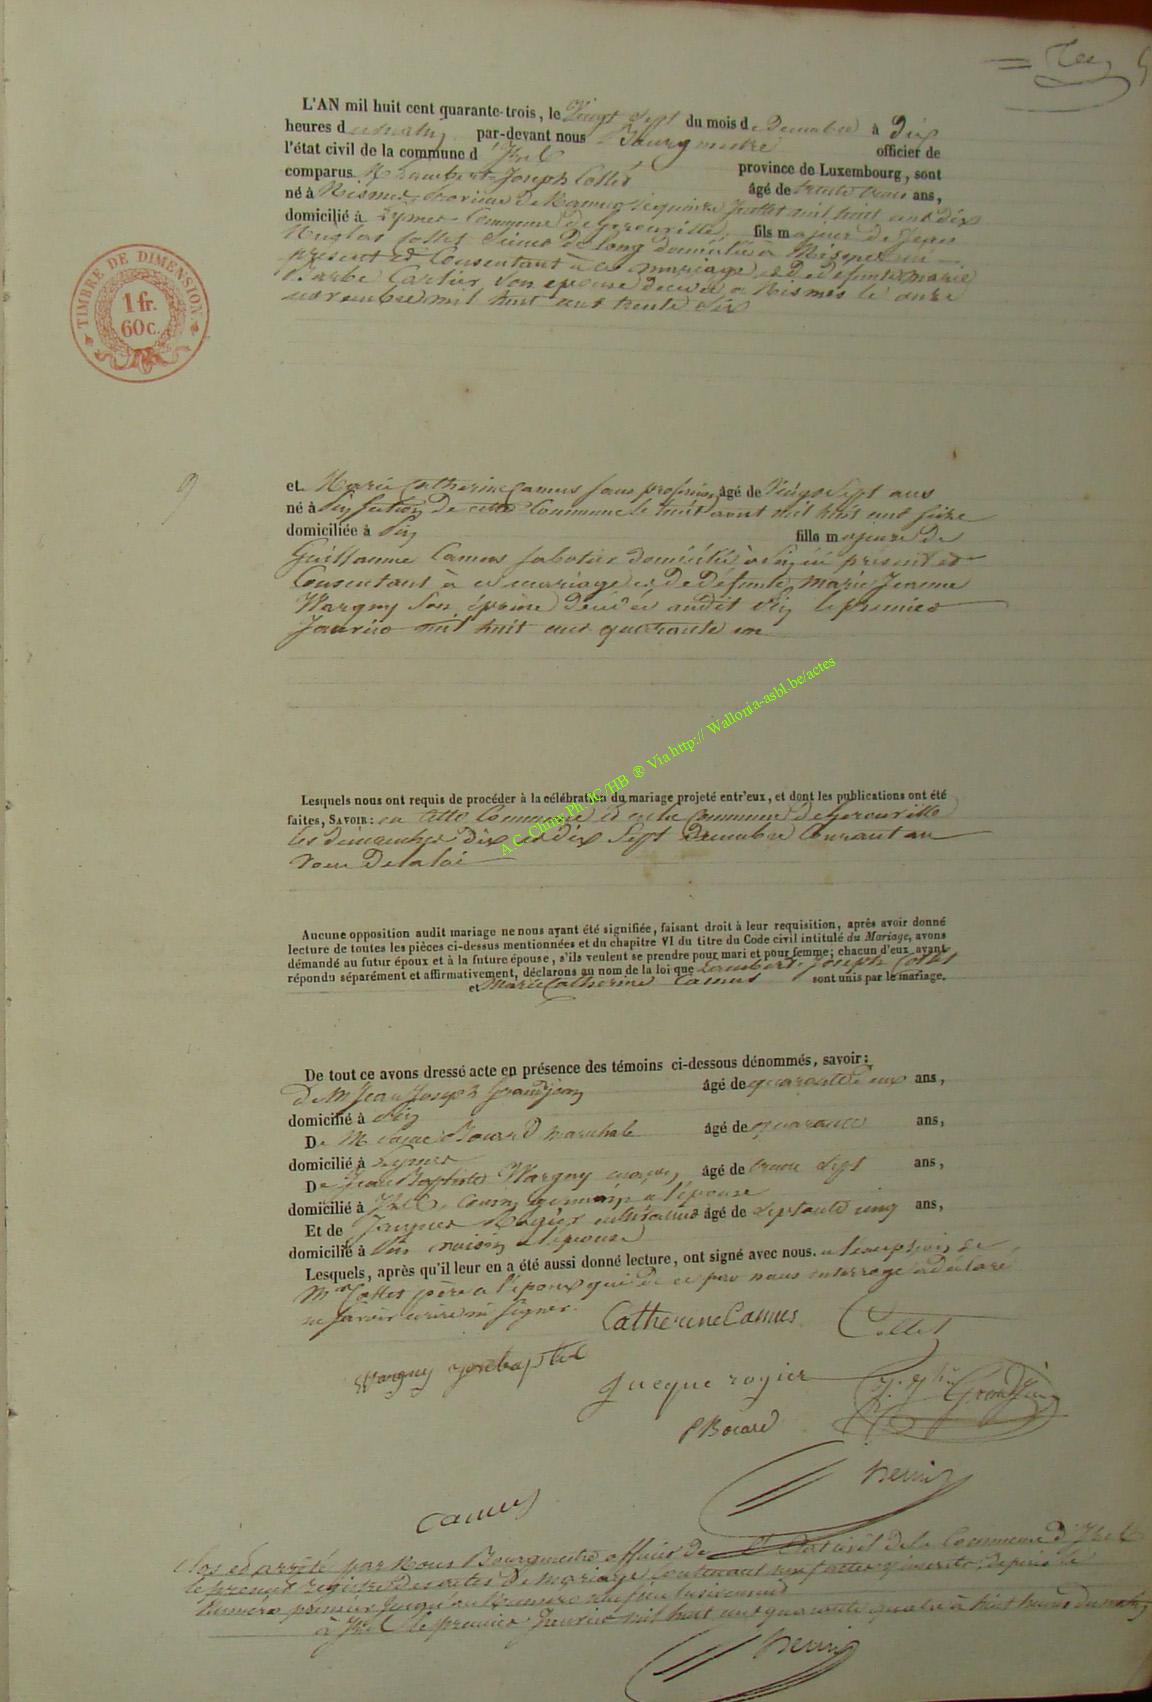 L'AN mil huit cent quarante-trois, le Vingt Sept du mois de Decembre à Dix
heures du matin par-devant nous Bourgmestre officier de
l'état civil de la commune d'Izel province de Luxembourg, sont
comparus Lambert Joseph Collet âgé de trente trois ans,
né à Nismes Province de Namur le quinze Juillet mil huit cent dix
domicilié à Lymes Commune de Gerouville, fils majeur de Jean
Collet Sieur de long domicilié à Nismes
present et Consentant à ce mariage et De defunte Marie
Barbe Cartier Son epouse decedée à Nismes le onze
novembre mil huit cent trente Six
TIMBRE DE DIMENSION.
1 fr.
60 c.
9
et Marie Catherine Camus sans profession âgé de Vingt Sept ans
né à Pin Section de cette Commune le huit aout mil huit cent seize
domiciliée à Pin fille majeure de
Guillaume Camus sabotier domicilié à Pin ici présent et
Consentant à ce mariage et De Défunte Marie Jeanne
Wargny Son épouse décédée audit Pin le premier
Janvier mil huit cent quarante un
Lesquels nous ont requis de procéder à la célébration du mariage projeté entr'eux, et dont les publications ont été
faites, SAVOIR : en cette Commune et en la Commune de Gerouville
les dimanches Dix et dix Sept Decembre Courant au
voeu De la loi
A.C. Chiny Ph. JC/HB ® Via http:// Wallonia-asbl.be/actes
Aucune opposition audit mariage ne nous ayant été signifiée, faisant droit à leur requisition, après avoir donné
lecture de toutes les pièces ci-dessus mentionnées et du chapitre VI du titre du Code civil intitulé du Mariage, avons
démandé au futur époux et à la future épouse, s'ils veulent se prendre pour mari et pour femme; chacun d'eux ayant
répondu séparément et affirmativement, déclarons au nom de la loi que Lambert Joseph Collet
et Marie Catherine Camus sont unis par le mariage.
De tout ce avons dressé acte en présence des témoins ci-dessous dénommés, savoir:
De M Jean Joseph Grandjean âgé de quarante deux ans,
domicilié à Pin
De M Bocard marechale âgé de quarante ans,
domicilié à Lymes
De Jean Baptiste Wargny âgé de trente Sept ans,
domicilié à Izel, cousin germain à l'épouse
Et de Jacques Rogier âgé de septante cinq ans,
domicilié à Pin voisin à l'épouse
Lesquels, après qu'il leur en a été aussi donné lecture, ont signé avec nous. a l'exception de
Mr Collet père a l'époux qui de ce par nous interrogé a déclaré
ne savoir écrire ni signer.
Catherine Camus Collet
Wargny jeanbaptiste
jacque rogier J. Jh. Grandjean
P Bocard
henin
Camus
Clos et arrêté par Nous Bourgmestre officier de l'Etat civil de la Commune d'Izel
le present registre Des actes De Mariage Contenant neuf actes y inscrits depuis le
Numéro premier jusqu'au Numero neuf inclusivement
à Izel le premier Janvier mil huit cent quarante quatre à huit heures du matin
henin